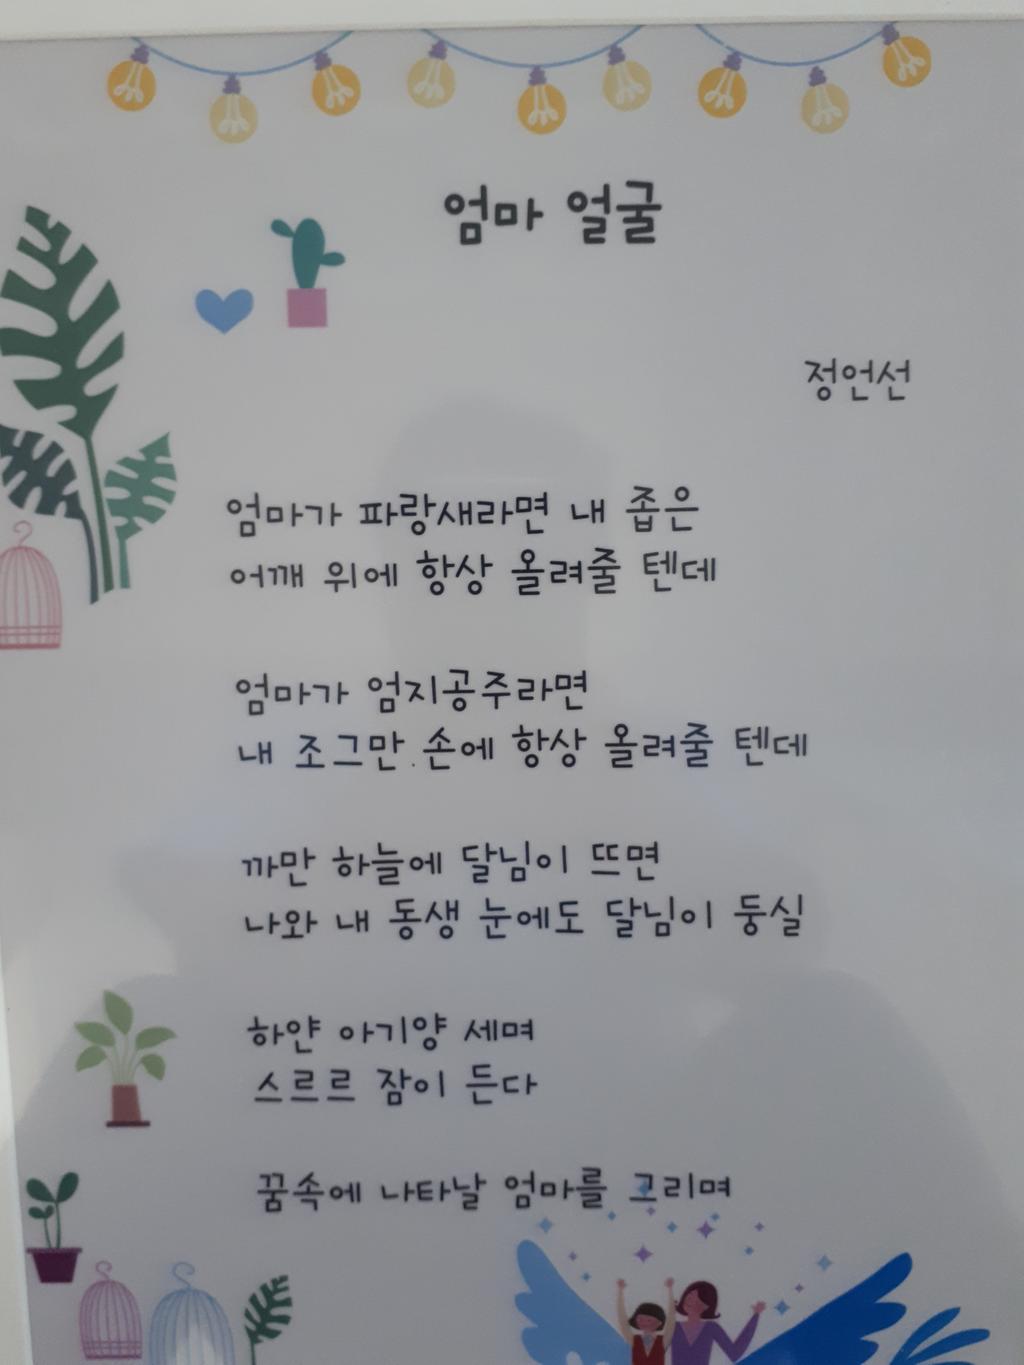 엄마 얼굴
정언선
엄마가 파랑새라면 내 좁은
어깨 위에 항상 올려줄 텐데
엄마가 엄지공주라면
내 조그만 손에 항상 올려줄 텐데
까만 하늘에 달님이 뜨면
나와 내 동생 눈에도 달님이 둥실
하얀 아기양 세며
스르르 잠이 든다
꿈속에 나타날 엄마를 그리며